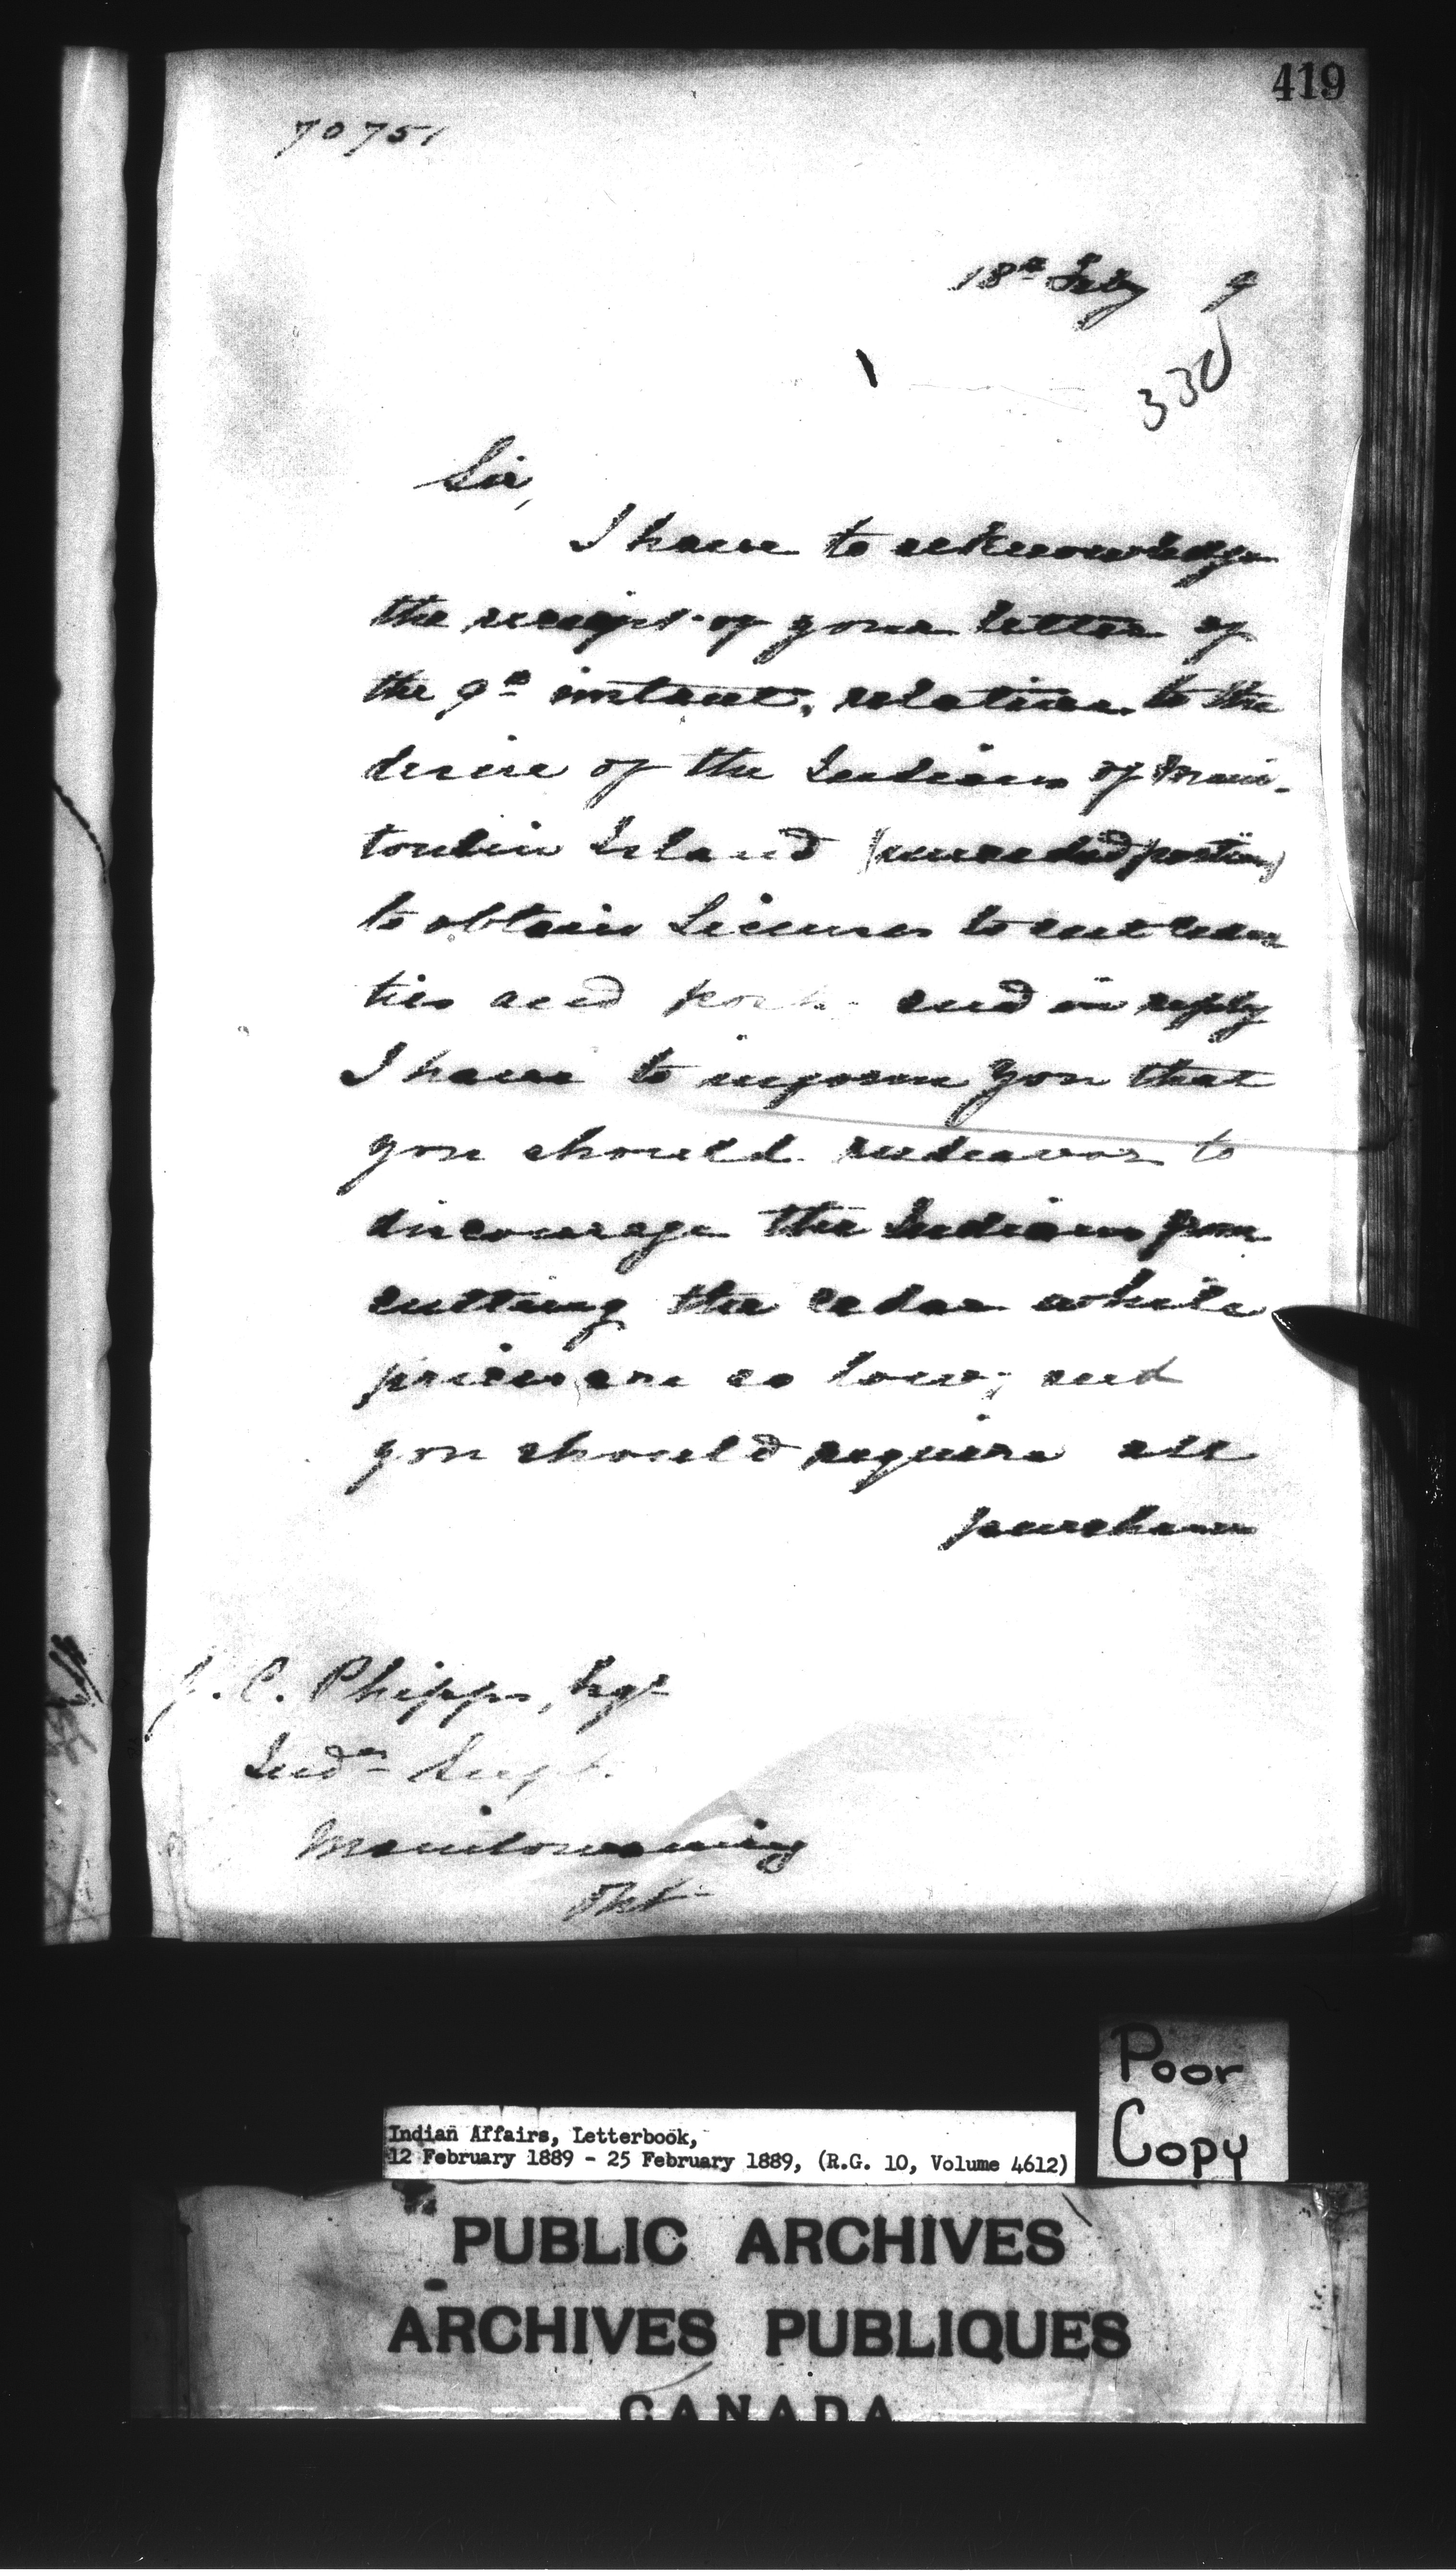 419
70751
18th Feby 9
330
Sir,
I have to acknowledge
the receipt of your letter of
the 9th instant, relative to the
desire of the Indians of Mani-
toulin Island (unceded portion)
to obtain Licenses to cut cedar
ties and posts and in reply
I have to inform you that
you should endeavor to
discourage the Indians from
cutting the cedar while
prices are so low; and
you should require all
purchasers
J. C. Phipps, Esqr
Indn Supt.
Manitowaning
Ont
Poor
Copy
Indian Affairs, Letterbook,
12 February 1889 - 25 February 1889, (R.G. 10, Volume 4612)
PUBLIC ARCHIVES
ARCHIVES PUBLIQUES
CANADA